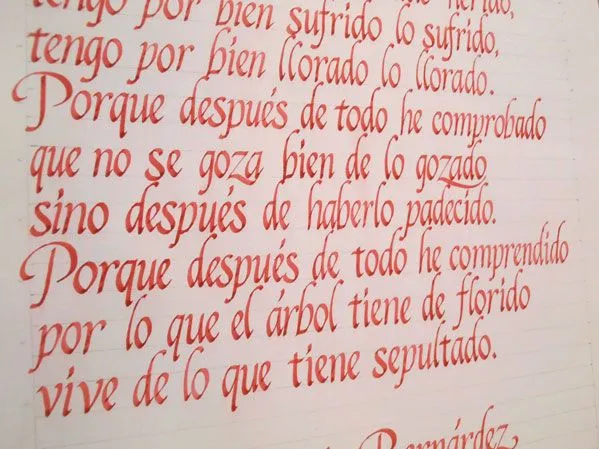 tengo por bien sufrido lo sufrido,
tengo por bien llorado lo llorado.
Porque después de todo he comprobado
que no se goza bien de lo gozado
sino después de haberlo padecido.
Porque después de todo he comprendido
por lo que el árbol tiene de florido
vive de lo que tiene sepultado.
Bernárdez